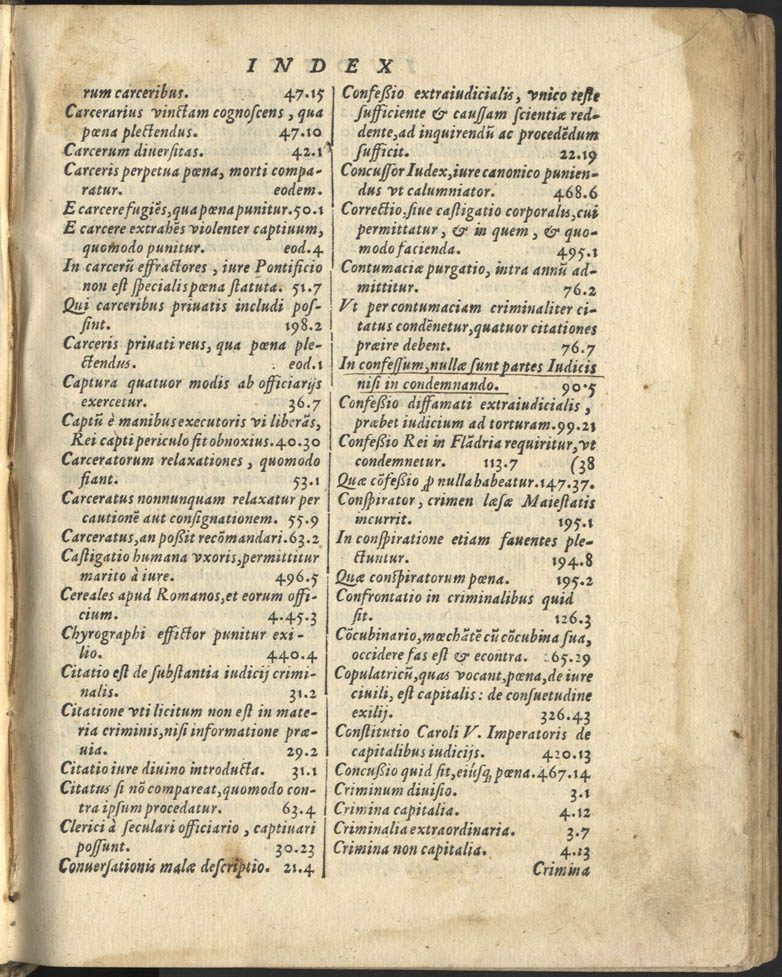 INDEX
rum carceribus. 47.15
Carcerarius vinctam cognoſcens, qua
pœna plectendus. 47.10
Carcerum diuerſitas. 42.1
Carceris perpetua pœna, morti compa-
ratur. eodem.
E carcere fugiẽs, qua pœna punitur. 50.1
E carcere extrahẽs violenter captiuum,
quomodo punitur. eod. 4
In carcerũ effractores, iure Pontificio
non eſt ſpecialis pœna ſtatuta. 51.7
Qui carceribus priuatis includi poſ-
ſint. 198.2
Carceris priuati reus, qua pœna ple-
ctendus. eod. 1
Captura quatuor modis ab officiarijs
exercetur. 36.7
Captũ è manibus executoris vi liberãs,
Rei capti periculo fit obnoxius. 40.30
Carceratorum relaxationes, quomodo
fiant. 53.1
Carceratus nonnunquam relaxatur per
cautionẽ aut conſignationem. 55.9
Carceratus, an poßit recõmandari. 63.2
Caſtigatio humana vxoris, permittitur
marito à iure. 496.5
Cereales apud Romanos, et eorum offi-
cium. 4.45.3
Chyrographi effictor punitur exi-
lio. 440.4
Citatio eſt de ſubſtantia iudicij crimi-
nalis. 31.2
Citatione vti licitum non eſt in mate-
ria criminis, niſi informatione præ-
uia. 29.2
Citatio iure diuino introducta. 31.1
Citatus ſi nõ compareat, quomodo con-
tra ipſum procedatur. 63.4
Clerici à ſeculari officiario, captiuari
poſſunt. 30.23
Conuerſationis malæ deſcriptio. 21.4
Confeßio extraiudicialis, vnico teſte
ſufficiente & cauſſam ſcientiæ red-
dente, ad inquirendũ ac procedẽdum
ſufficit. 22.19
Concuſſor Iudex, iure canonico punien-
dus vt calumniator. 468.6
Correctio, ſiue caſtigatio corporalis, cui
permittatur, & in quem, & quo-
modo facienda. 495.1
Contumaciæ purgatio, intra annũ ad-
mittitur. 76.2
Vt per contumaciam criminaliter ci-
tatus condẽnetur, quatuor citationes
præire debent. 76.7
In confeſſum, nullæ ſunt partes Iudicis
niſi in condemnando. 90.5
Confeßio diffamati extraiudicialis,
præbet iudicium ad torturam. 99.21
Confeßio Rei in Flãdria requiritur, vt
condemnetur. 113.7 (38
Quæ cõfeßio ꝓ nulla habeatur. 147.37.
Conſpirator, crimen læſæ Maieſtatis
incurrit. 195.1
In conſpiratione etiam fauentes ple-
ctuntur. 194.8
Quæ conſpiratorum pœna. 195.2
Confrontatio in criminalibus quid
ſit. 126.3
Cõcubinario, mœchãtẽ cũ cõcubina ſua,
occidere fas eſt & econtra. 265.29
Copulatricũ, quas vocant, pœna, de iure
ciuili, eſt capitalis: de conſuetudine
exilij. 326.43
Conſtitutio Caroli V. Imperatoris de
capitalibus iudicijs. 420.13
Concußio quid ſit, eiúſq; pœna. 467.14
Criminum diuiſio. 3.1
Crimina capitalia. 4.12
Criminalia extraordinaria. 3.7
Crimina non capitalia. 4.13
Crimina